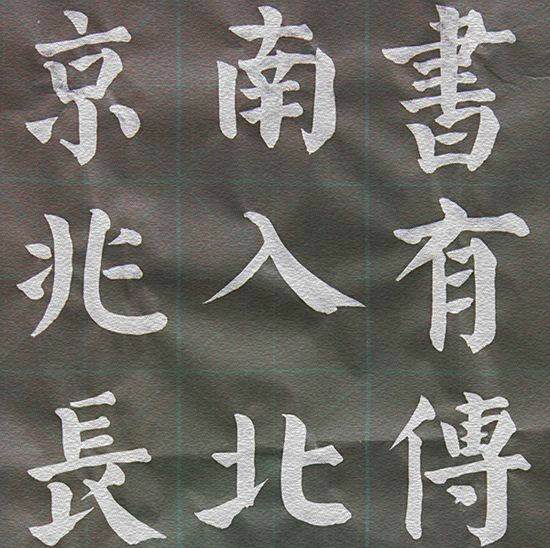 書有傳
南入北
京兆長